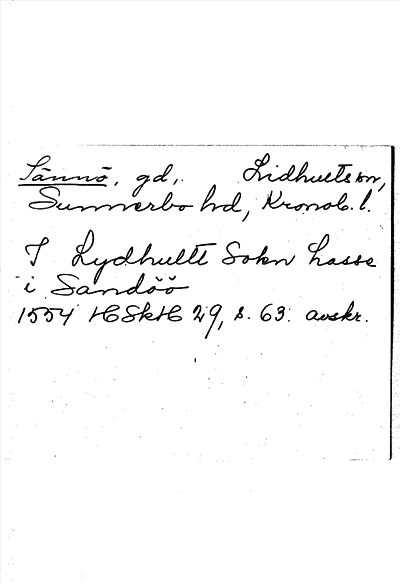 Sännö, gd, Lidhults sn,
Sunnerbo hd, Kronob. l.
J Lydhultt Sokn Lasse
i Sandöö
1554 HSkH 29, s. 63. avskr.